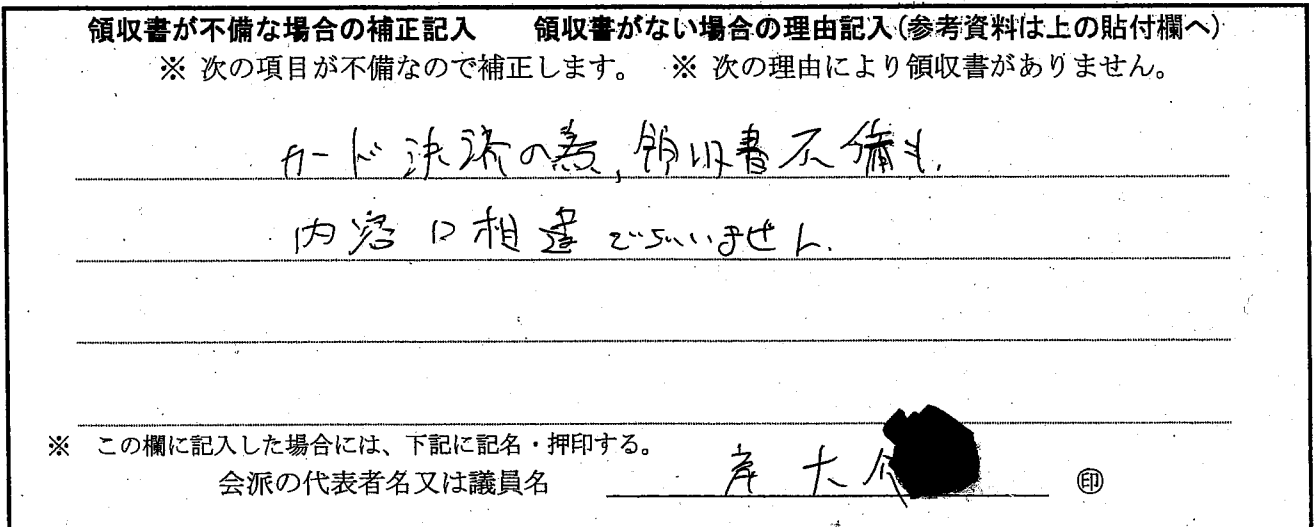 領収書が不備な場合の補正記入 領収書がない場合の理由記入(参考資料は上の貼付欄へ)
※ 次の項目が不備なので補正します。 ※ 次の理由により領収書がありません。
カード決済の為,領収書不備も,
内容に相違ございません.
※ この欄に記入した場合には、下記に記名・押印する。
会派の代表者名又は議員名 岸 大介 ㊞